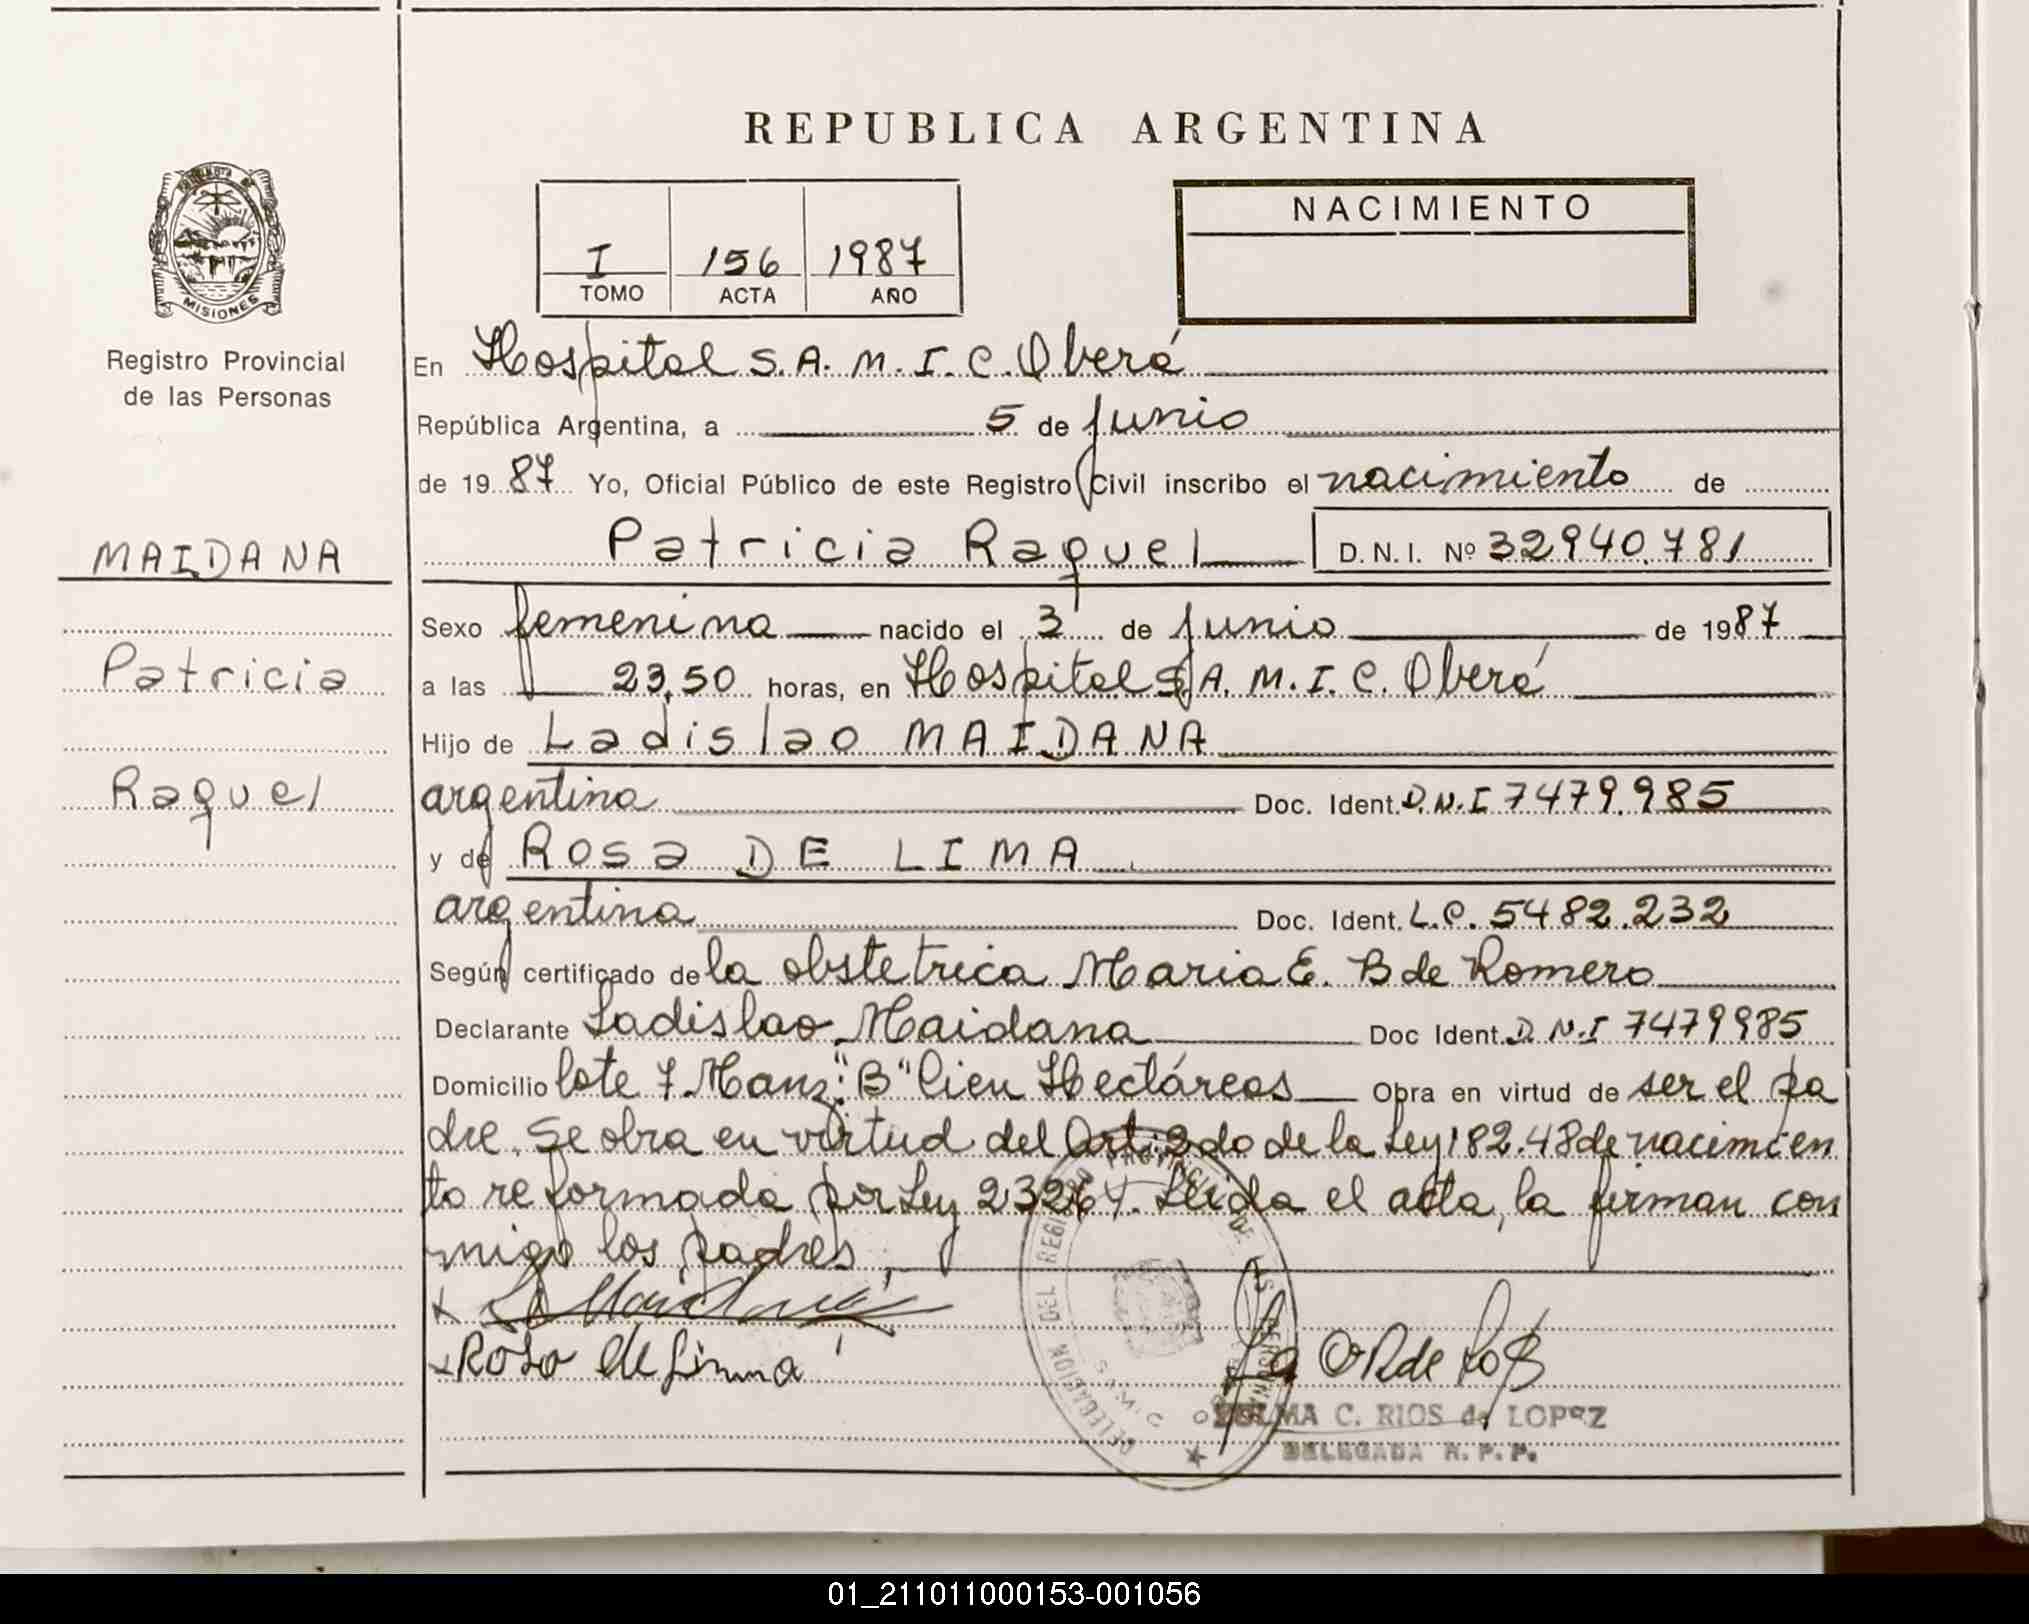 REPUBLICA ARGENTINA
MISIONES
Registro Provincial
de las Personas
MAIDANA
Patricia
Raquel
I 156 1987
TOMO ACTA AÑO
NACIMIENTO
En Hospital S.A.M.I.C. Oberá
República Argentina, a 5 de junio
de 1987 Yo, Oficial Público de este Registro Civil inscribo el nacimiento de
Patricia Raquel D.N.I. Nº 32940.781
Sexo femenina nacido el 3 de junio de 1987
a las 23,50 horas, en Hospital S.A.M.I.C. Oberá
Hijo de Ladislao MAIDANA
argentino Doc. Ident. D.N.I 7479.985
y de Rosa DE LIMA
argentina Doc. Ident. L.C. 5482.232
Según certificado de la obstetrica Maria E. B de Romero
Declarante Ladislao Maidana Doc Ident. D.N.I 7479985
Domicilio lote 7 Manz: "B" Cien Hectáreas Obra en virtud de ser el pa
dre. Se obra en virtud del Art: 2do de la Ley 182.48 de nacimien
to reformada por Ley 23264. Leida el acta, la firman con
migo los padres
x L. Maidana
x Rosa de Lima
DELEGACION DEL REGISTRO PROVINCIAL DE LAS PERSONAS
S.A.M.I.C. OBERA
ZULMA C. RIOS de LOPEZ
DELEGADA R. P. P.
01_211011000153-001056